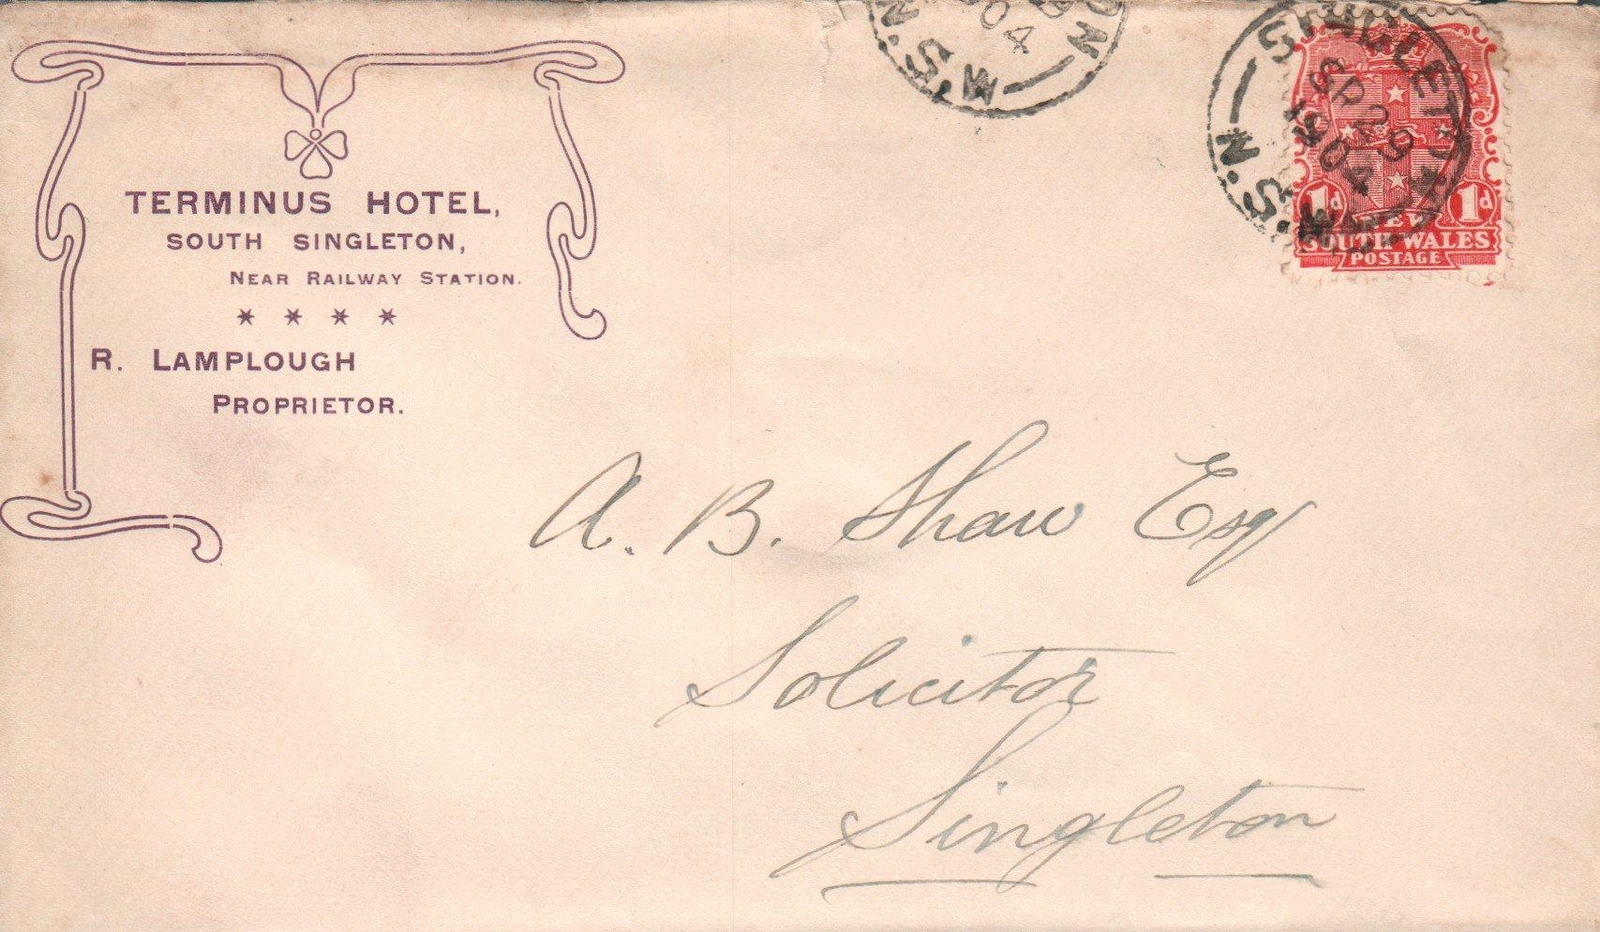 TERMINUS HOTEL,
SOUTH SINGLETON,
NEAR RAILWAY STATION.
R. LAMPLOUGH
PROPRIETOR.
ON
04
N.S.W
SINGLETON
SP 29
1904
N.S.W
1d 1d
NEW
SOUTH WALES
POSTAGE
A. B. Shaw Esq
Solicitor
Singleton